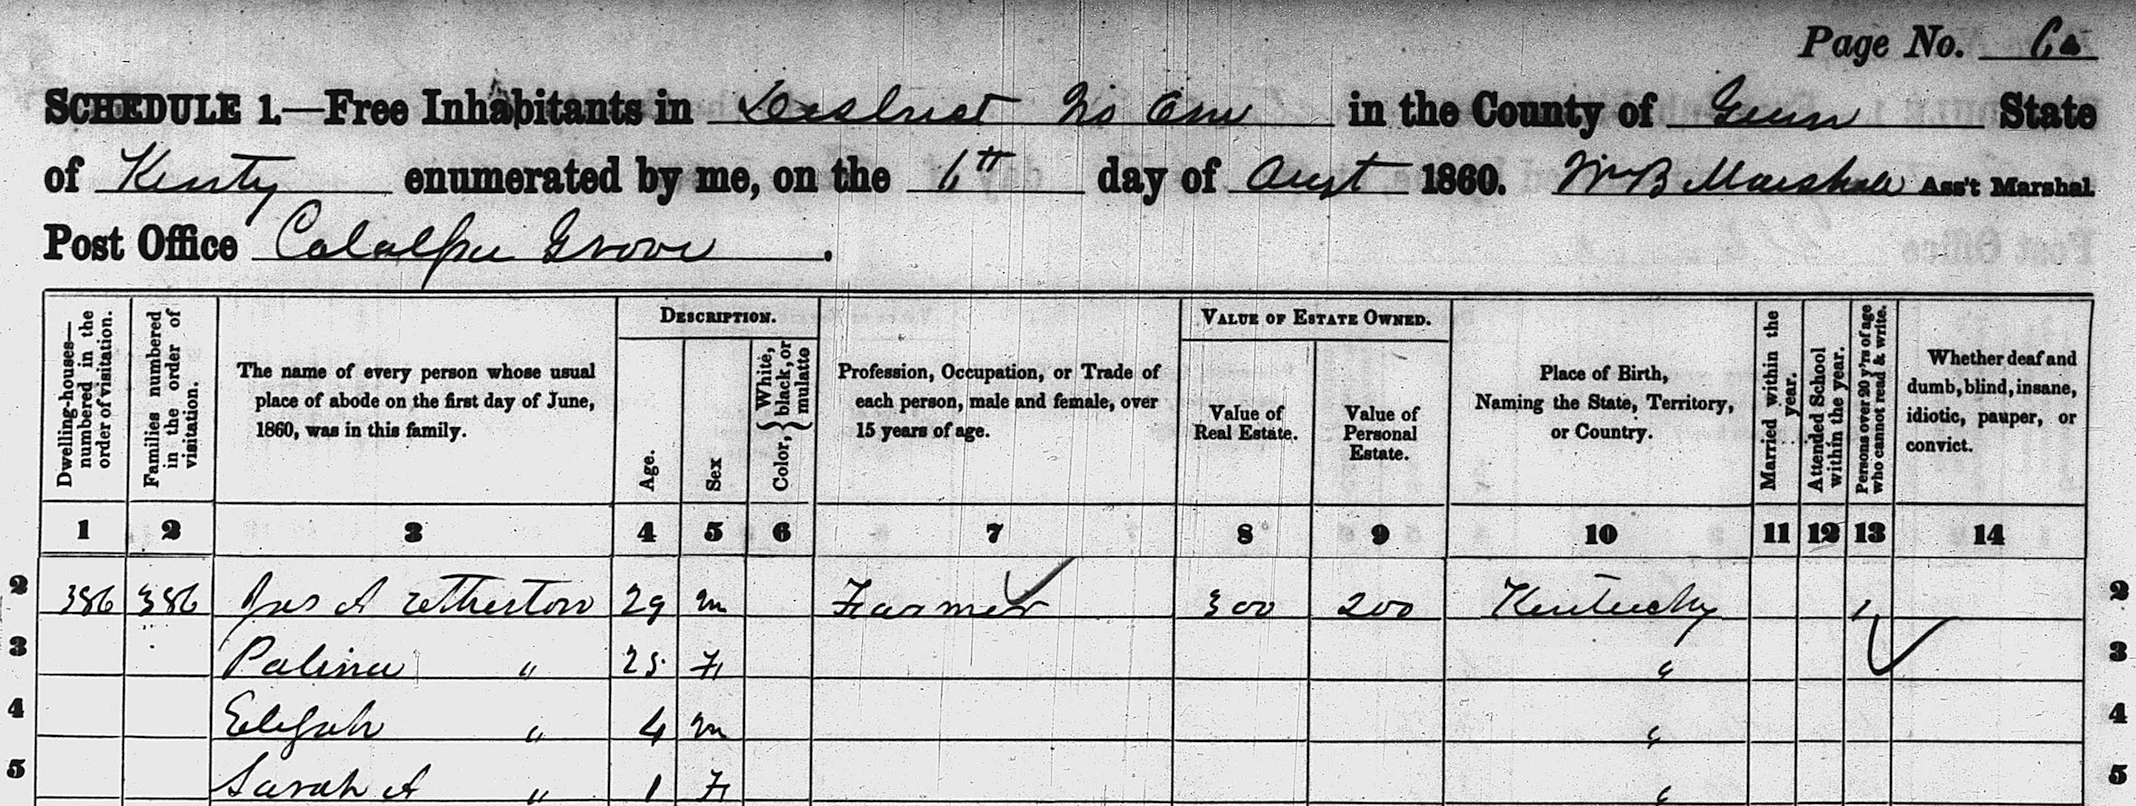 Page No. 60
SCHEDULE 1.—Free Inhabitants in District No One in the County of Green State
of Kenty enumerated by me, on the 6th day of Augt 1860. Wm B Marshall Ass't Marshal
Post Office Catalpa Grove.
Dwelling-houses—numbered in the order of visitation.
Families numbered in the order of visitation.
The name of every person whose usual place of abode on the first day of June, 1860, was in this family.
DESCRIPTION.
Age.
Sex
Color, { White, black, or mulatto
Profession, Occupation, or Trade of each person, male and female, over 15 years of age.
VALUE OF ESTATE OWNED.
Value of Real Estate.
Value of Personal Estate.
Place of Birth, Naming the State, Territory, or Country.
Married within the year.
Attended School within the year.
Persons over 20 y'rs of age who cannot read & write.
Whether deaf and dumb, blind, insane, idiotic, pauper, or convict.
1 2 3 4 5 6 7 8 9 10 11 12 13 14
2 386 386 Jas A Etherton 29 m Farmer 300 200 Kentucky 1 2
3 Palina " 25 F " 3
4 Elijah " 4 m " 4
5 Sarah A " 1 F " 5